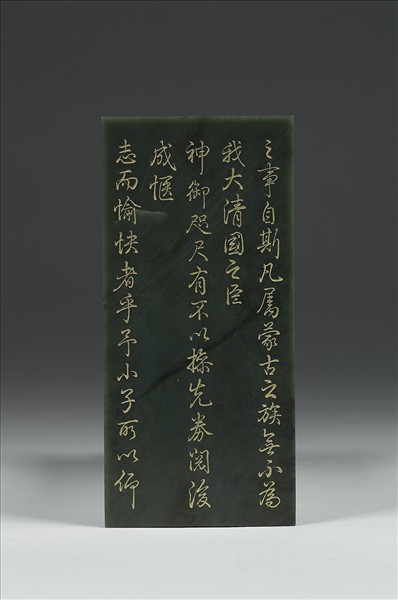 之事自斯凡屬蒙古之族無不為
我大清國之臣
神御咫尺有不以操先券閱後
成愜
志而愉快者乎予小子所以仰